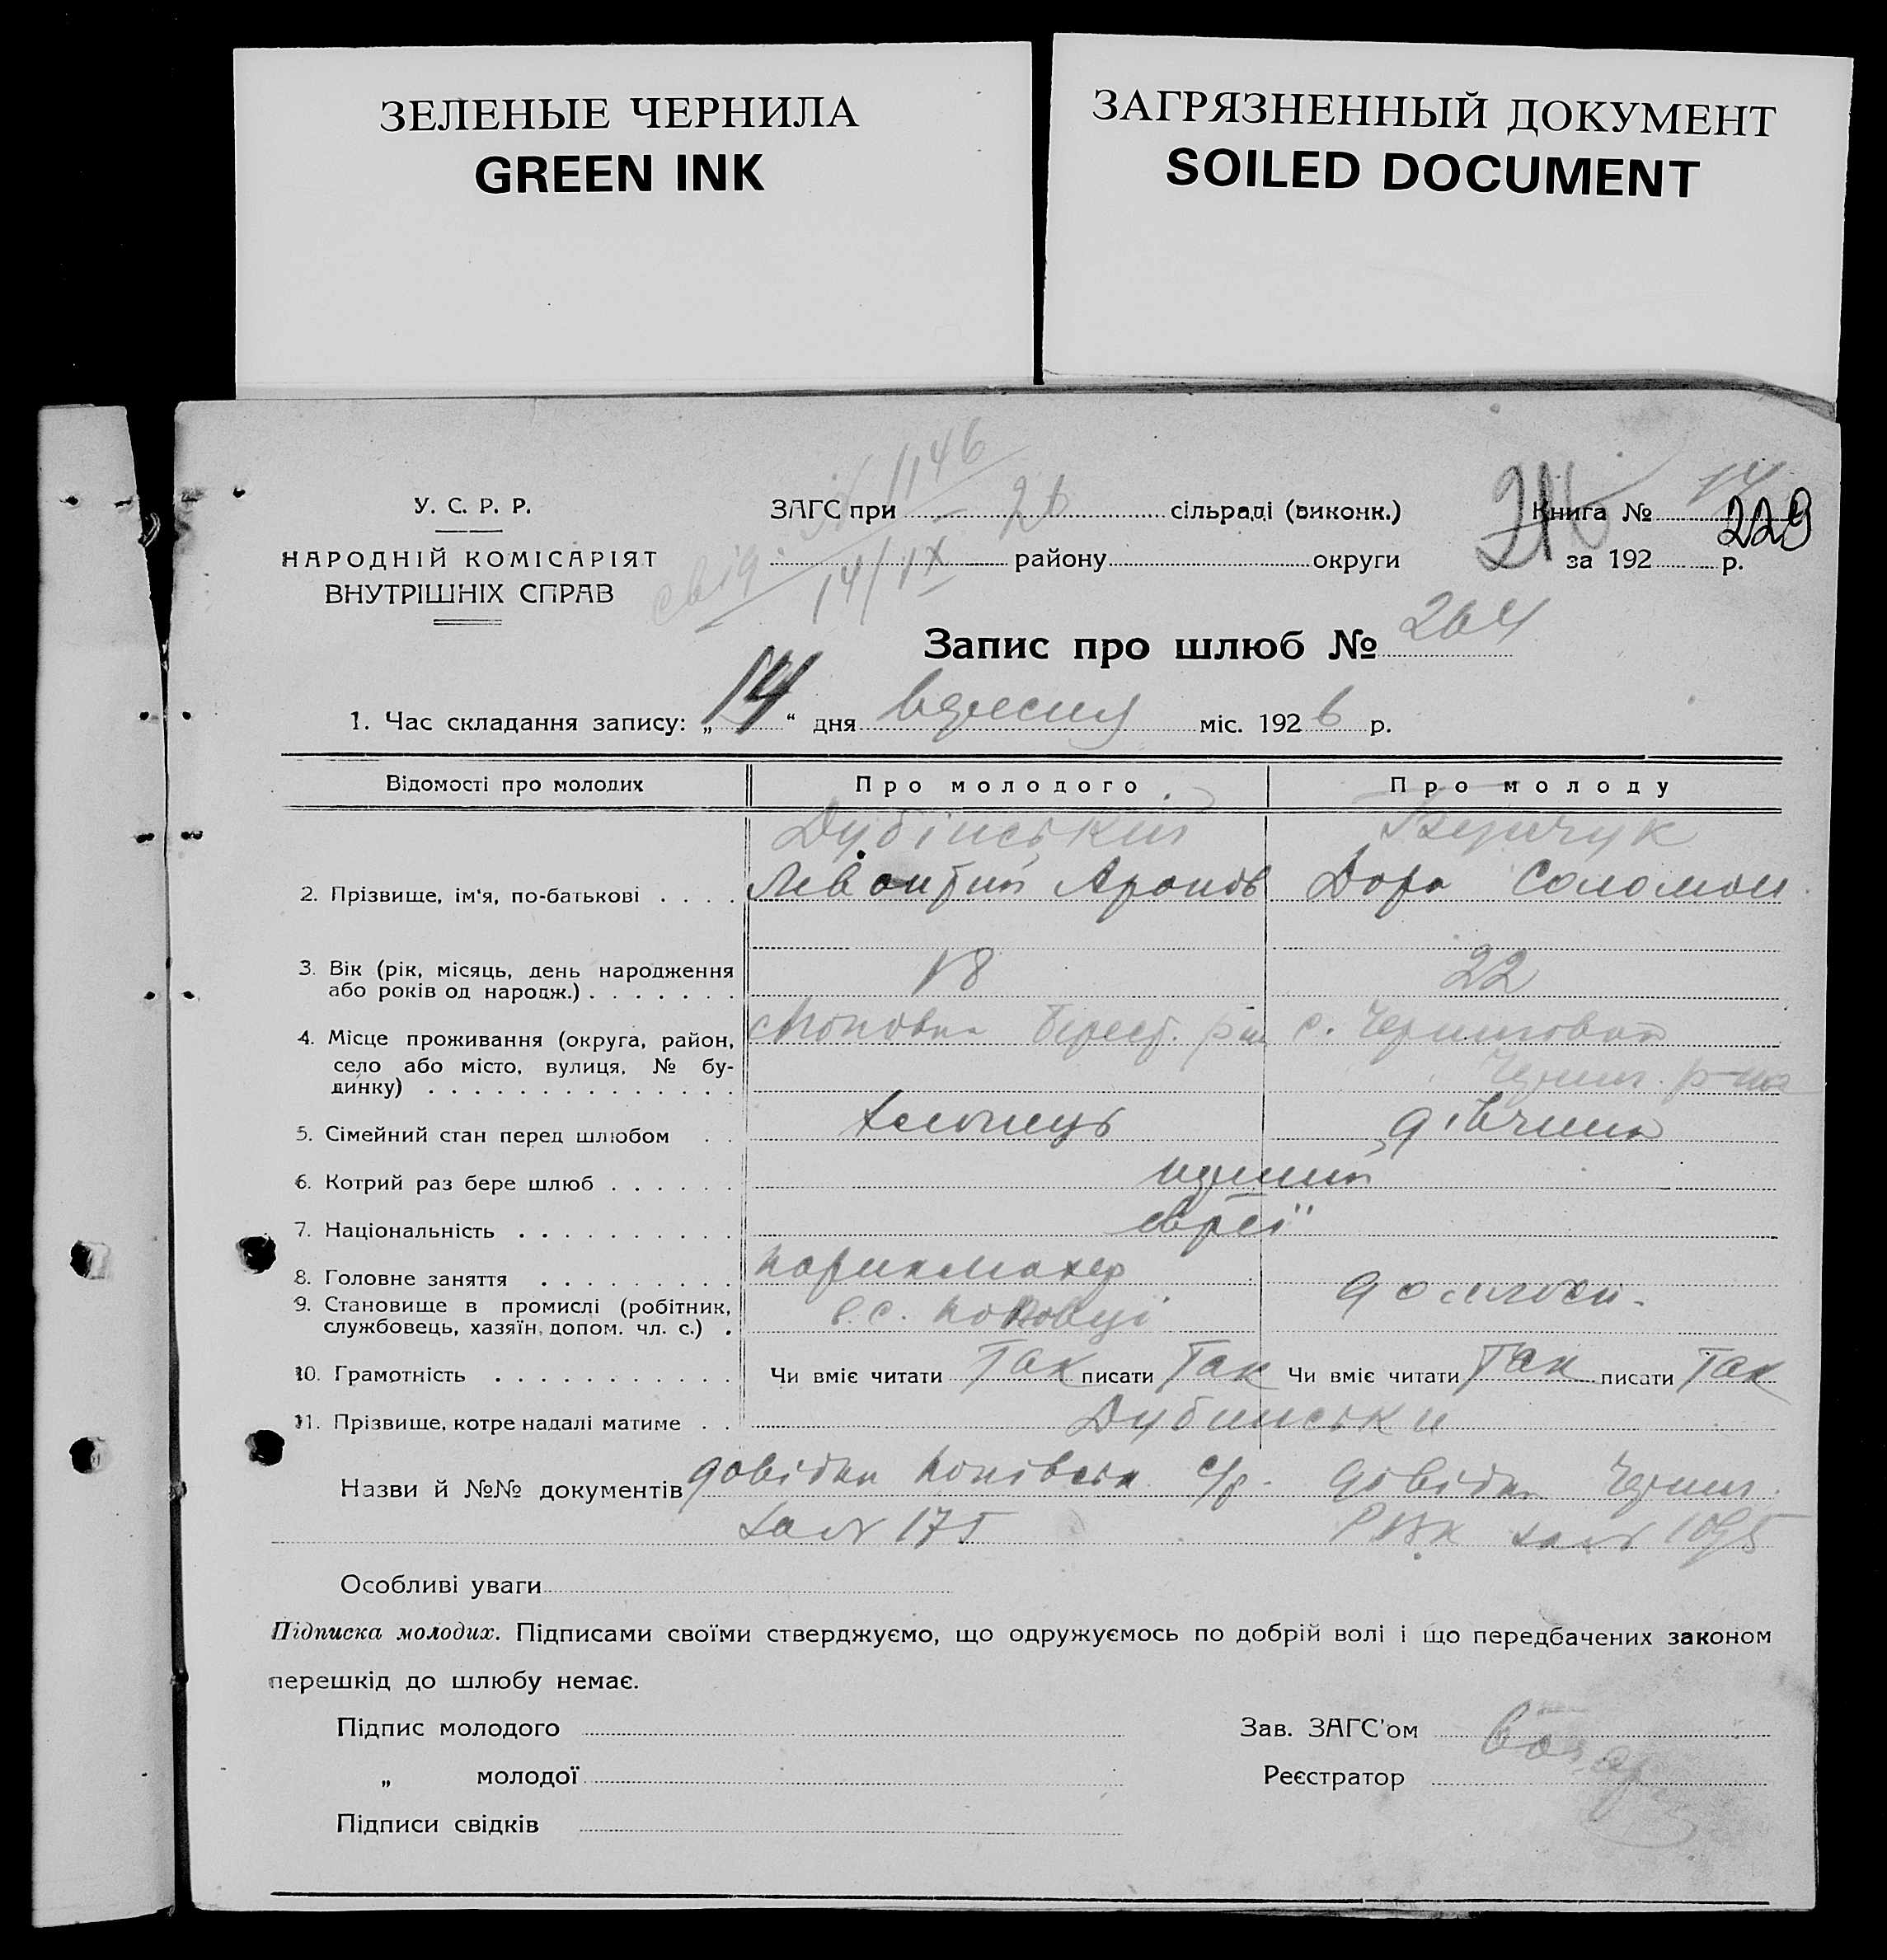 ЗЕЛЕНЫЕ ЧЕРНИЛА
GREEN INK
ЗАГРЯЗНЕННЫЙ ДОКУМЕНТ
SOILED DOCUMENT
У. С. Р. Р.
НАРОДНІЙ КОМІСАРІЯТ
ВНУТРІШНІХ СПРАВ
свід. № 1146
14/IX 26
ЗАГС при сільраді (виконк.)
району округи
Книга № 14
229
за 192 р.
Запис про шлюб № 264
1. Час складання запису: „14“ дня вересня міс. 1926 р.
Відомості про молодих Про молодого Про молоду
Дубінський
2. Прізвище, ім'я, по-батькові Аронов Дора Соломон
3. Вік (рік, місяць, день народження 18 22
або років од народж.)
4. Місце проживання (округа, район, с.
село або місто, вулиця, № бу- р-на
динку)
5. Сімейний стан перед шлюбом хлопець дівчина
6. Котрий раз бере шлюб перший
7. Національність євреї
8. Головне заняття парикмахер
9. Становище в промислі (робітник, в с.
службовець, хазяїн, допом. чл. с.)
10. Грамотність Чи вміє читати Так писати Так Чи вміє читати Так писати Так
11. Прізвище, котре надалі матиме Дубинськи
Назви й №№ документів довідка с/р. довідка Черниг.
за № 175 РВК за №
Особливі уваги
Підписка молодих. Підписами своїми стверджуємо, що одружуємось по добрій волі і що передбачених законом
перешкід до шлюбу немає.
Підпис молодого Зав. ЗАГС'ом
„ молодої Реєстратор
Підписи свідків